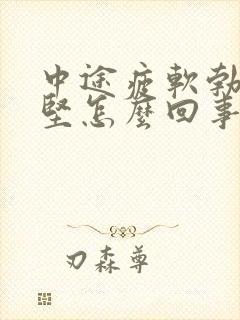 中途疲軟勃
堅怎麼回事
刃森尊